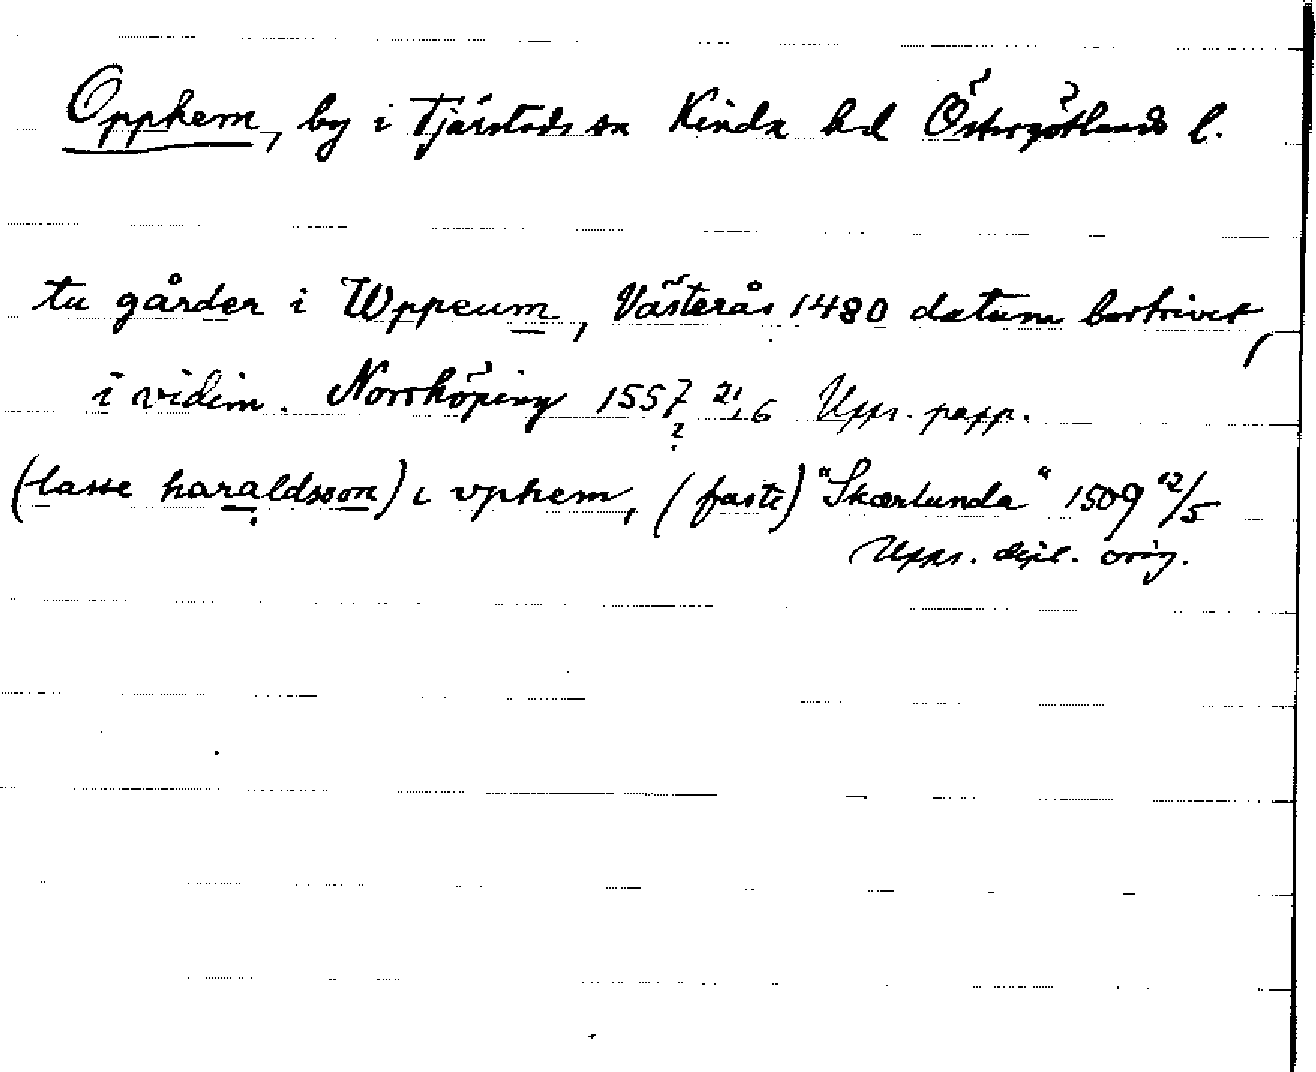 Opphem, by i Tjärstads sn Kinda hd Östergötlands l.
tu gårder i Wppeum, Västerås 1480 datum bortrivet,
i vidim. Norrköping 1557 21/6 Upps. papp.
?
(lasse haraldsson) i vphem, (faste) "Skærlunda" 1509 12/5
Upps. dipl. orig.